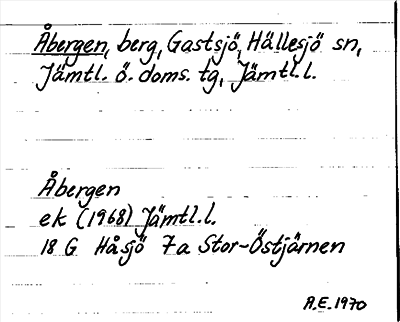 Åbergen, berg, Gastsjö, Hällesjö sn,
Jämtl. ö. doms. tg, Jämtl.l.
Åbergen
ek (1968) Jämtl.l.
18 G Håsjö 7a Stor-Östjärnen
A.E. 1970